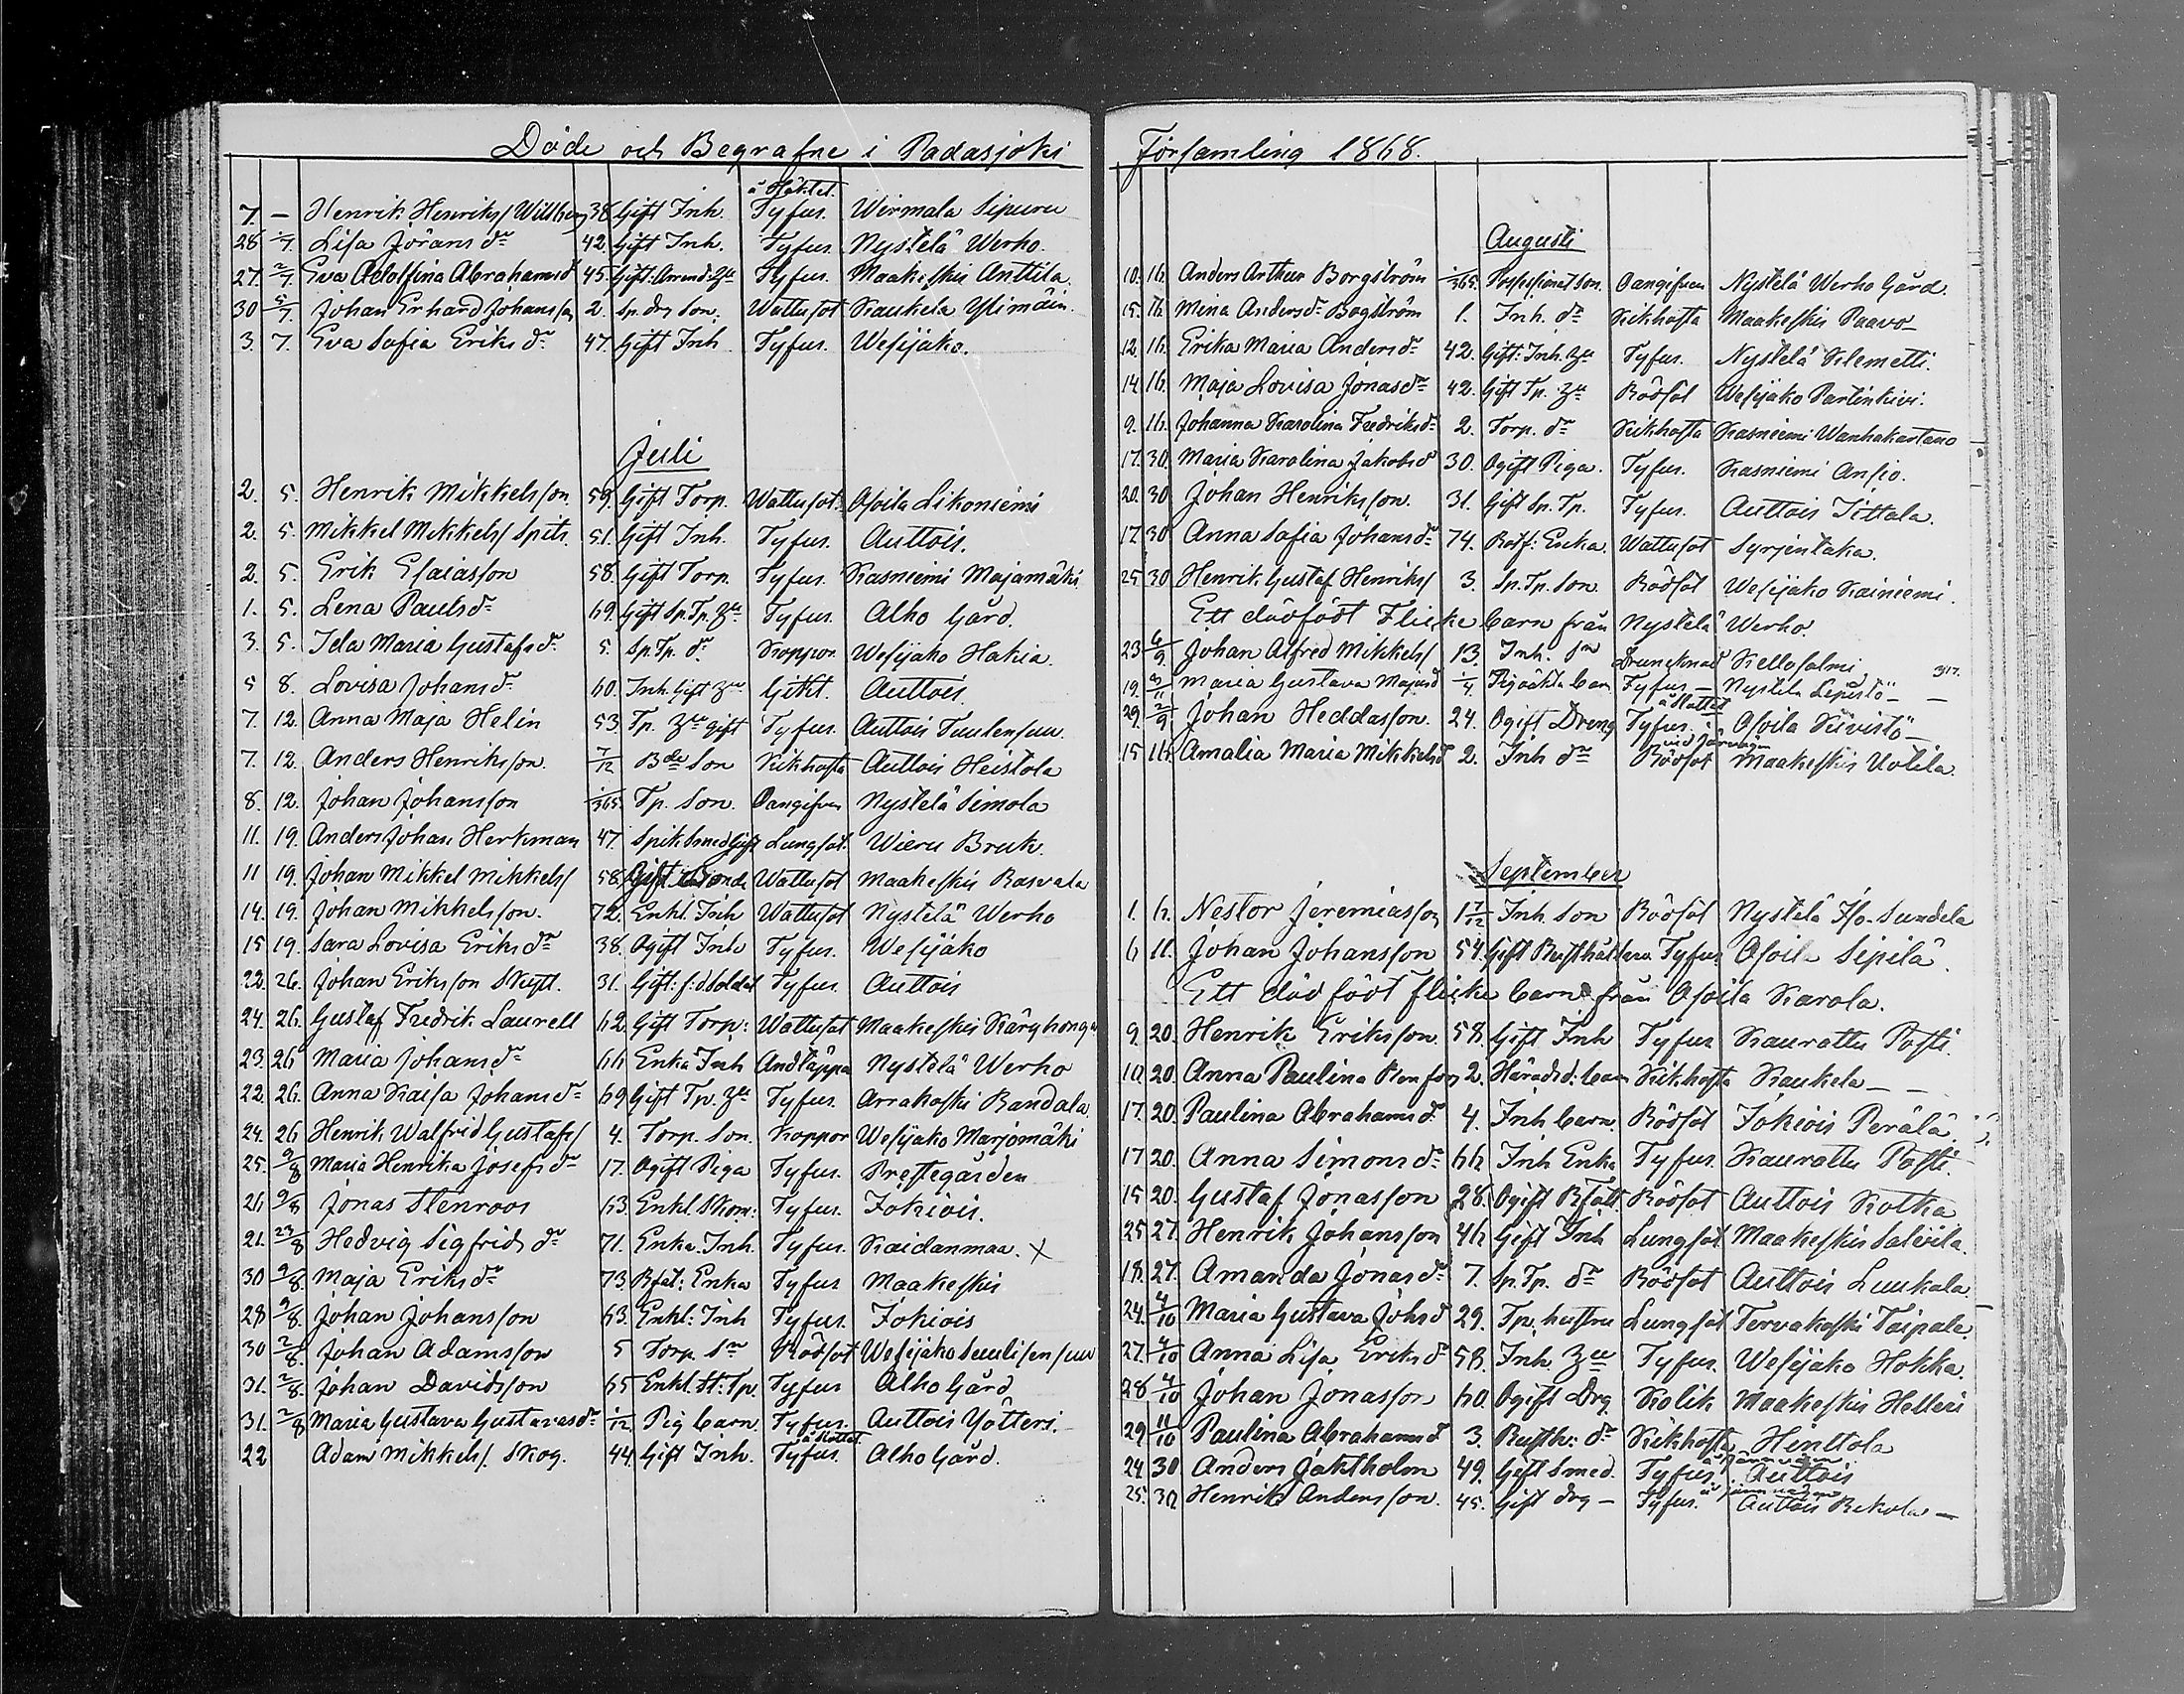 Döde och Begrafne i Padasjoki
7. — Henrik Henriks/ Willberg 38. Gift Inh. Tyfus. å Häktet. Wirmala Sipuru
28 7. Lisa Jörans dr 42. Gift Inh. Tyfus. Nystelä Werho.
27. 2/7. Eva Adolfina Abrahamsd 45. Gift. Arrend: Tyfus. Maakeskis Anttila.
30 5/7. Johan Erhard Johansson 2. Sp. drg Son. Wattusot Kaukela Ylimäin.
3. 7. Eva Sofia Eriks dr 47. Gift Inh Tyfus. Wesijako.
Juli
2. 5. Henrik Mikkelsson. 59. Gift Torp. Wattusot. Osoila Likoniemi
2. 5. Mikkel Mikkels/ Spets. 51. Gift Inh. Tyfus. Auttois.
2. 5. Erik Esaiasson 58. Gift Torp. Tyfus. Kasniemi Majamäki
1. 5. Lena Pauls dr 69. Gift Sp. Tp. Tyfus. Alho Gård.
3. 5. Ida Maria Gustafs dr 5. Sp. Tp. dr Koppor. Wesijako Hakia.
5 8. Lovisa Johans dr 60. Inh. Gift Gikt. Auttois.
7. 12. Anna Maja Helin 53. Tp. gift Tyfus. Auttois Tuulensuu.
7. 12. Anders Henriksson. 7/12 Bde Son Kikhosta Auttois Heistola
8. 12. Johan Johansson 1/365. Tp. Son. Oangifven Nystelä Simola
11. 19. Anders Johan Herkman 47. Spiksmed Gift Lungsot. Wieru Bruk.
11 19. Johan Mikkel Mikkels/ 58. Gift Bonde Wattusot Maakeskis Rasvala
14. 19. Johan Mikkelsson. 72. Enkl. Inh Wattusot Nystelä Werho
15 19. Sara Lovisa Eriks dr 38. Ogift Inh Tyfus. Wesijako
22. 26. Johan Eriksson Skytt. 31. Gift: f: d. Soldat Tyfus. Auttois
24. 26. Gustaf Fredrik Laurell 62. Gift Torp: Wattusot Maakeskis Käryhonga
23. 26 Maria Johans dr 66 Enka Inh Andtäppa Nystelä Werho
22. 26. Anna Kaisa Johans dr 69 Gift Tp. Tyfus. Arrakoski Randala.
24. 26 Henrik Walfrid Gustafs/ 4. Torp. Son. Koppor Wesijako Marjomäki
25. 9/8 Maria Henrika Josefs dr 17. Ogift Piga Tyfus. Prestegården
26 9/8 Jonas Stenroos 63. Enkl. Skom: Tyfus. Jokiois.
21. 23/8 Hedvig Sigfrids dr 71. Enka. Inh. Tyfus. Kaidanmaa. X
30 9/8. Maja Eriks dr 73. Rfat: Enka Tyfus Maakeskis
28 9/8. Johan Johansson 63. Enkl: Inh Tyfus. Jokiois
30 2/8. Johan Adamsson 5 Torp. Sn Rödsot Wesijako
31. 2/8. Johan Davidsson 65 Enkl. St: Tp. Tyfus Alho Gård
31. 2/8 Maria Gustava Gustavas dr 1/12 Pig barn. Tyfus. Auttois Yötteri.
22 Adam Mikkels/. Skog. 44. Gift Inh. Tyfus. å Slottet. Alho Gård.
Församling 1868.
Augusti
10. 16. Anders Arthur Borgström 1/365. Possessionat Son. Oangifven Nystelä Werho Gård.
15. 16. Mina Anders dr Bogström 1. Inh. dr Kikhosta Maakeskis Paavo —
12. 16. Erika Maria Anders dr 42. Gift: Inh. Tyfus. Nystelä Klemetti.
14. 16. Maja Lovisa Jonas dr 42. Gift Tp. Rödsot Wesijako Partinkivi.
9. 16. Johanna Karolina Fredriks dr 2. Torp. dr Kikhosta Kasniemi Wanhakartano
17. 30. Maria Karolina Jakobs d 30. Ogift Piga. Tyfus. Kasniemi Ansio.
20. 30 Johan Henriksson. 31. Gift Sp. Tp. Tyfus. Auttois Tittola.
17. 30 Anna Sofia Johans dr 74. Rotf: Enka. Wattusot Syrjentaka.
25 30 Henrik Gustaf Henriks/ 3. Sp. Tp. Son. Rödsot Wesijako Kainiemi.
Ett dödfödt Flicke barn från Nystelä Werho.
23 6/9. Johan Alfred Mikkels/ 13. Inh. Sn Drunknad Kellosalmi
19. Maria Gustava Majasd 1/4. barn Tyfus — Nystelä Lepistö — —
29. 2/9. Johan Heddasson. 24. Ogift Dreng Tyfus. å Slottet Osoila Kivistö —
15 16. Amalia Maria Mikkelsd 2. Inh dr Rödsot Maakeskis Uotila.
September
1. 6. Nestor Jeremiasson 1 7/12 Inh. Son Rödsot Nystelä Iso-Sundela
6 11. Johan Johansson 54. Gift Rusthållare Tyfus Osoila Sipilä.
Ett dödfödt flicke barn från Osoila Karola.
9. 20. Henrik Eriksson. 58. Gift Inh Tyfus Kaurattu Posti.
10. 20. Anna Paulina 2. Härads d: barn Kikhosta Kaukela — —
17. 20. Paulina Abrahams d. 4. Inh barn Rödsot Jokiois Perälä.
17 20. Anna Simons dr 66 Inh Enka Tyfus. Kaurattu Posti.
15 20. Gustaf Jonasson 28. Ogift Rfatt. Rödsot Auttois Kotka
25 27. Henrik Johansson 46 Gift Inh Lungsot. Maakeskis Salivila.
18. 27. Amanda Jonas dr 7. Sp. Tp. dr Rödsot Auttois Luukala.
24. 4/10 Maria Gustava Johs d 29. Tp. hustru Lungsot Torvakoski Taipale.
27. 4/10 Anna Lisa Eriks dr 58. Inh. Tyfus. Wesijako Hokka.
28 4/10 Johan Jonasson 60. Ogift Drg. Kolik Maakeskis Helleri
29 11/10 Paulina Abrahams d 3. Rusth: dr Kikhosta Hinttola
24. 30 Anders Jaktholm 49. Gift Smed. Tyfus. Auttois
25. 30 Henrik Andersson. 45. Gift drg — Tyfus. Auttois Rekola —